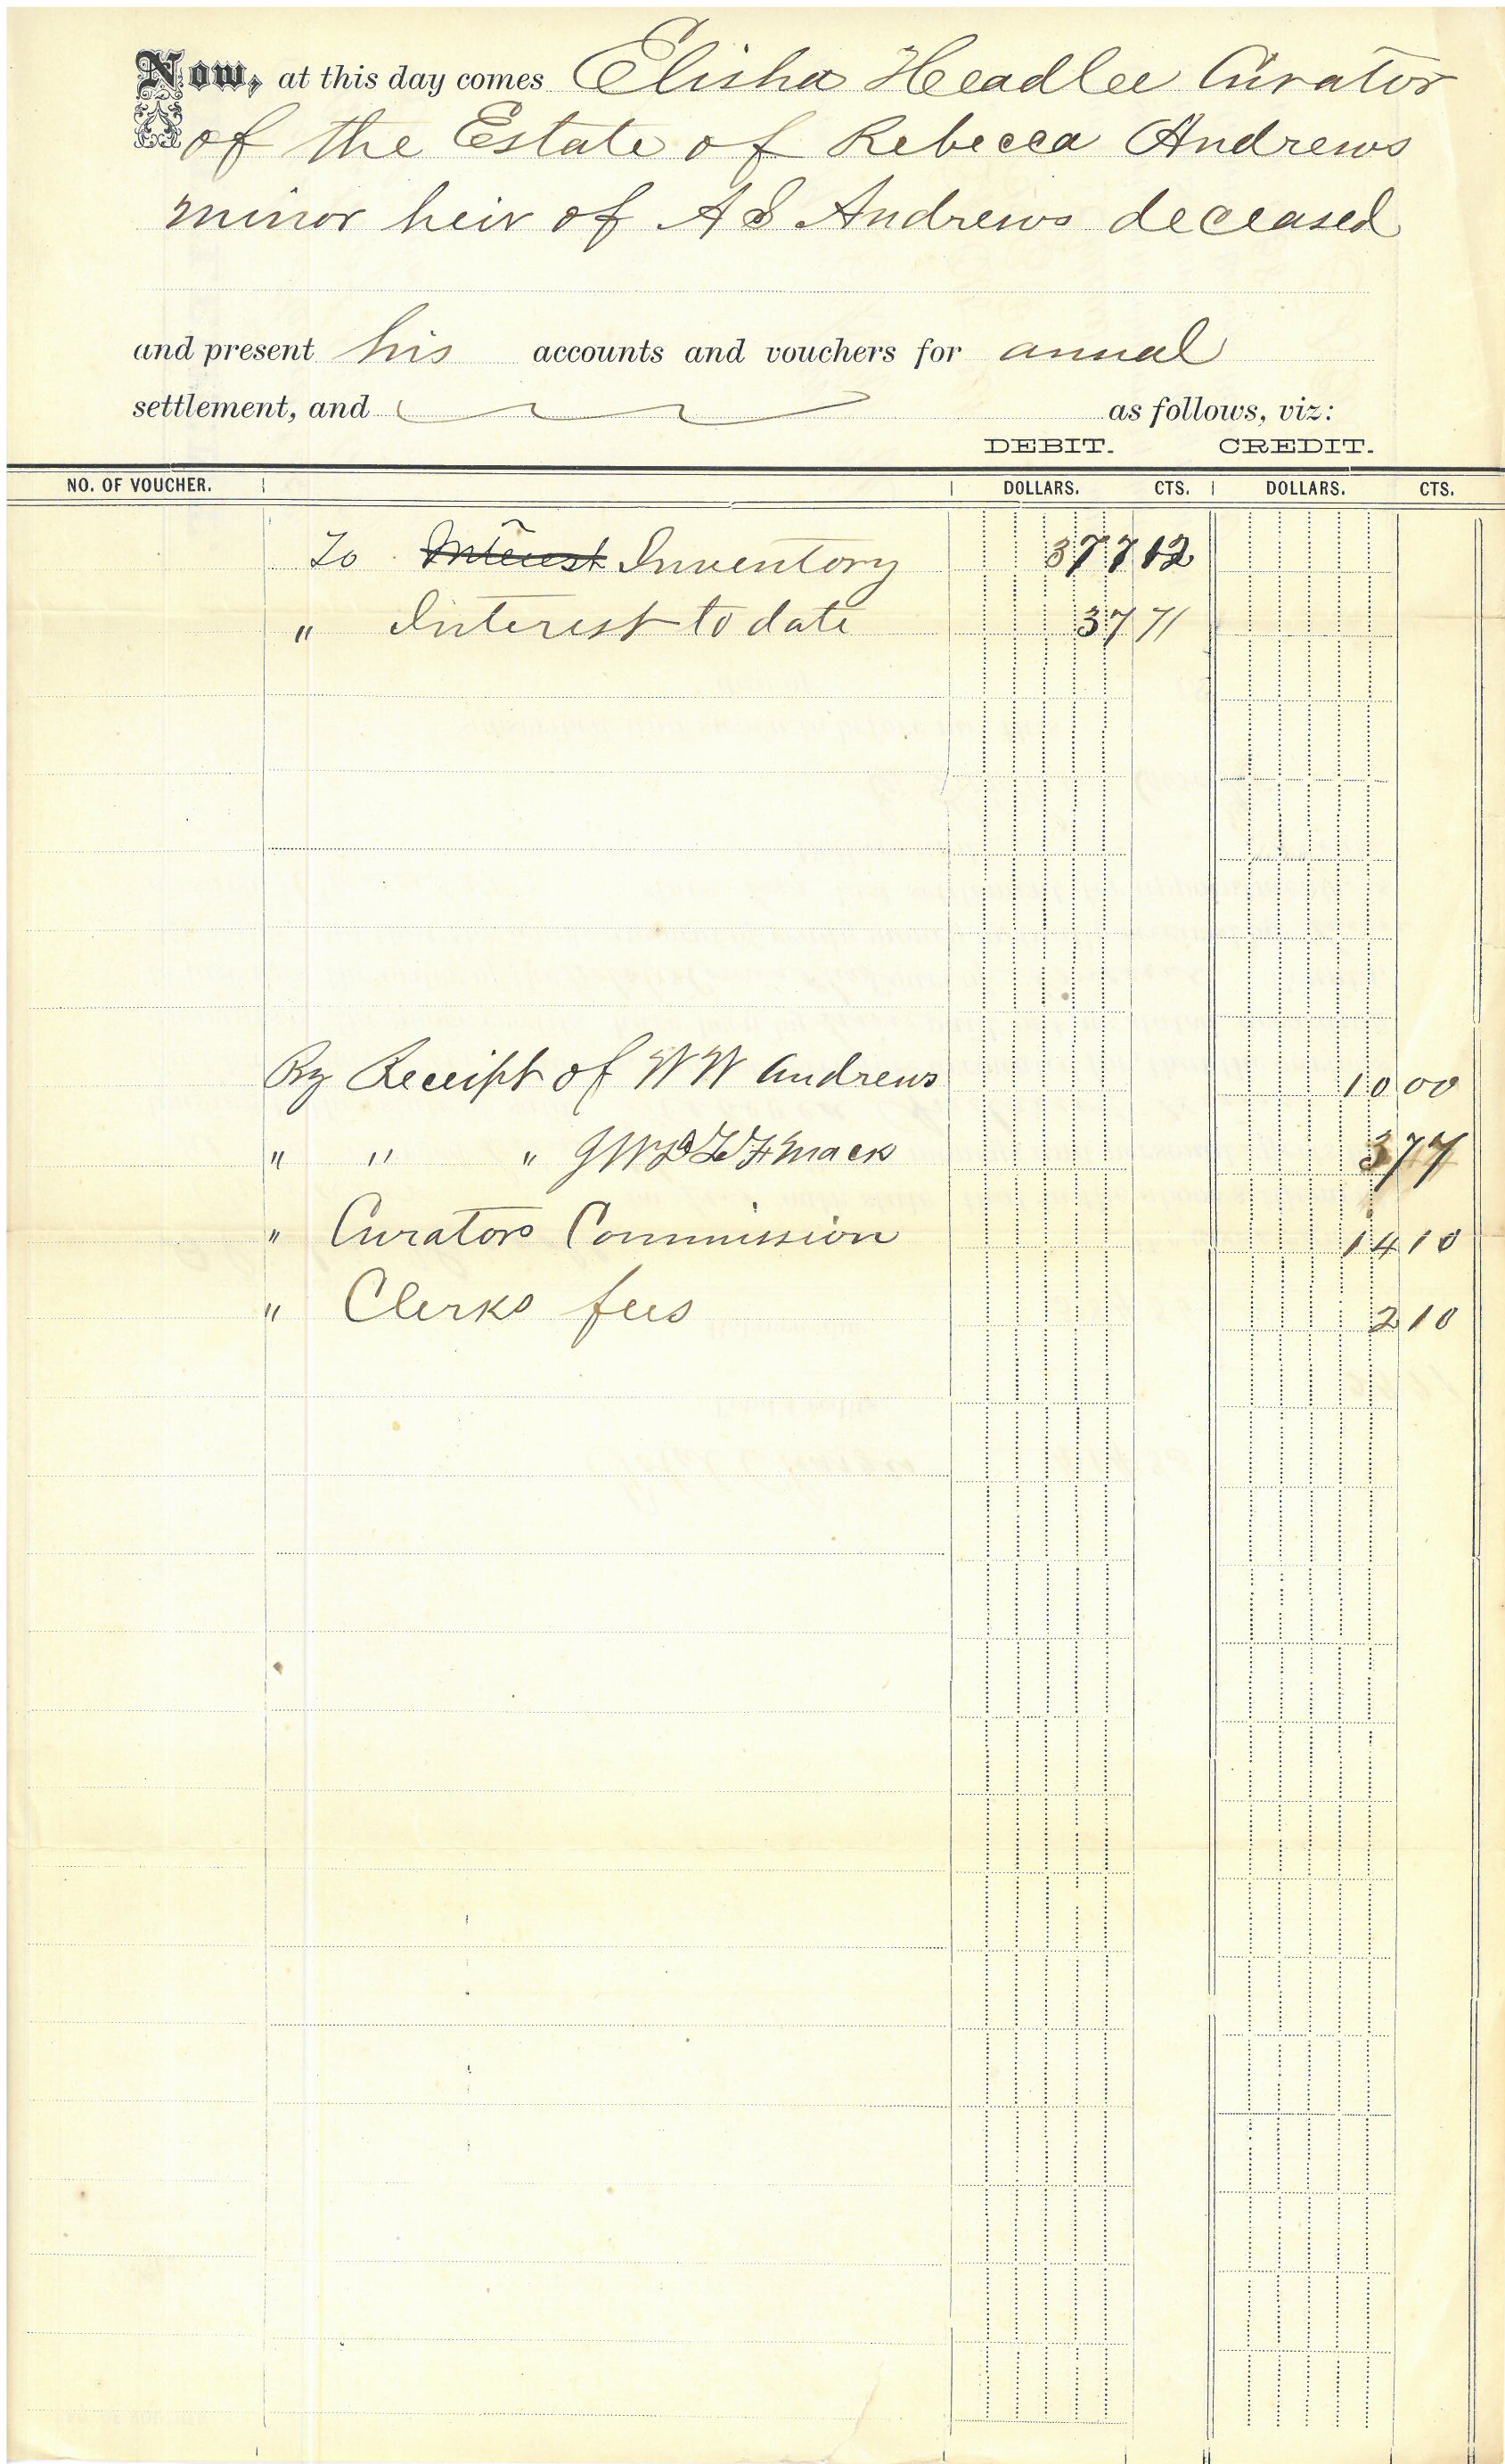 Now, at this day comes Elisha Headlee Curator
of the Estate of Rebecca Andrews
minor heir of A S Andrews deceased
and present his accounts and vouchers for annual
settlement, and as follows, viz:
DEBIT. CREDIT.
NO. OF VOUCHER. DOLLARS. CTS. DOLLARS. CTS.
To Interest Inventory 377 12
" Interest to date 37 71
By Receipt of W W Andrews 10 00
" " " Mack 3 77
" Curators Commission 14 10
" Clerks fees 2 10